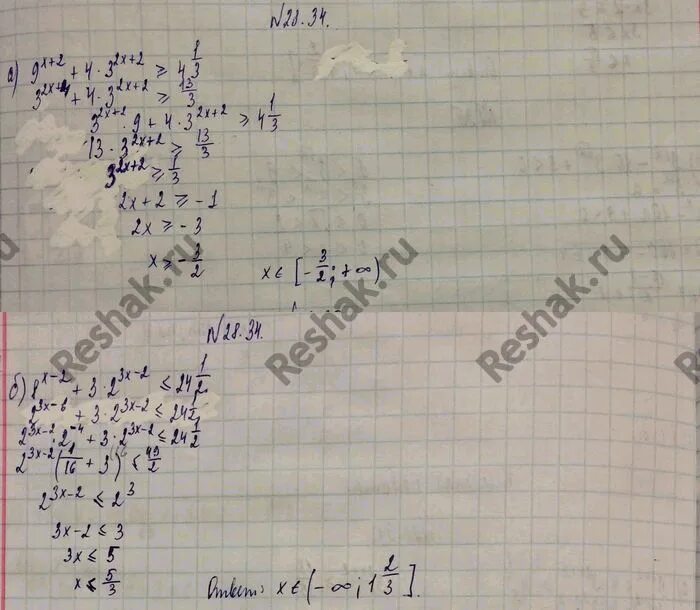 №28.34.
а) 9^{x+2} + 4 · 3^{2x+2} ≥ 4 1/3
3^{2x+4} + 4 · 3^{2x+2} ≥ 13/3
3^{2x+2} · 9 + 4 · 3^{2x+2} ≥ 4 1/3
13 · 3^{2x+2} ≥ 13/3
3^{2x+2} ≥ 1/3
2x + 2 ≥ -1
2x ≥ -3
x ≥ -3/2
x ∈ [-3/2; +∞)
№28.34.
б) 8^{x-2} + 3 · 2^{3x-2} ≤ 24 1/2
2^{3x-6} + 3 · 2^{3x-2} ≤ 24 1/2
2^{3x-2} · 2^{-4} + 3 · 2^{3x-2} ≤ 24 1/2
2^{3x-2} (1/16 + 3) ≤ 49/2
2^{3x-2} ≤ 2^3
3x - 2 ≤ 3
3x ≤ 5
x ≤ 5/3
Ответ: x ∈ (-∞; 1 2/3].
Reshak.ru
Reshak.ru
Reshak.ru